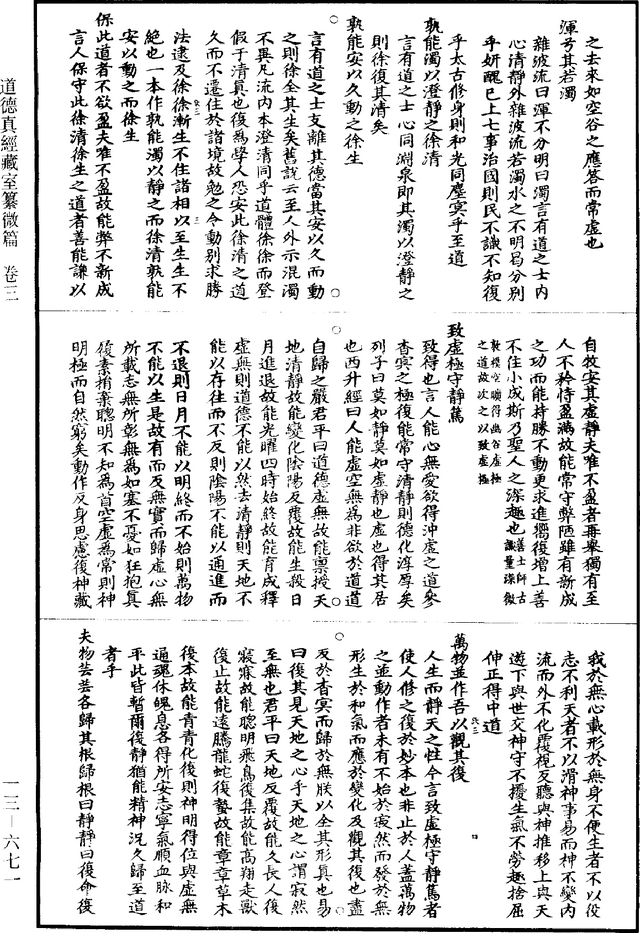 之去來如空谷之應答而常虛也
渾兮其若濁
雜波流曰渾不分明曰濁言有道之士內
心清靜外雜波流若濁水之不明曷分別
乎妍醜已上七事治國則民不識不知復
乎太古修身則和光同塵冥乎至道
孰能濁以澄靜之徐清
言有道之士心同淵泉即其濁以澄靜之
則徐復其清矣
孰能安以久動之徐生
言有道之士支離其德當其安以久而動
之則徐全其生矣舊說云至人外示混濁
不異凡流內本澄清同乎道體徐徐而登
假于清真也復為學人恐安此徐清之道
久而不遷住於諸境故勉之令動別求勝
法逮及徐徐漸生不住諸相以至生生不
絕也一本作孰能濁以靜之而徐清孰能
安以動之而徐生
保此道者不欲盈夫唯不盈故能弊不新成
言人保守此徐清徐生之道者善能謙以
自牧安其虛靜夫唯不盈者再舉獨有至
人不矜恃盈滿故能常守弊陋雖有新成
之功而能持勝不動更求進嚮復增上善
不住小成斯乃聖人之深趣也善士師古識量深微
敦樸空曠得幽谷虛極之道故次之以致虛極
致虛極守靜篤
致得也言人能心無愛欲得沖虛之道參
杳冥之極復能常守清靜則德化淳厚矣
列子曰莫如靜莫如虛靜也虛也得其居
也西升經曰人能虛空無為非欲於道道
自歸之嚴君平曰道德虛無故能稟授天
地清靜故能變化陰陽反覆故能生殺日
月進退故能光曜四時始終故能育成釋
虛無則道德不能以然去清靜則天地不
能以存往而不反則陰陽不能以通進而
不退則日月不能以明終而不始則萬物
不能以生是故有而反無實而歸虛心無
所載志無所彰無為如塞不憂如狂抱真
履素捐棄聰明不知為首空虛為常則神
明極而自然窮矣動作反身思慮復神藏
我於無心載形於無身不便生者不以役
志不利天者不以滑神事易而神不變內
流而外不化覆視反聽與神推移上與天
遊下與世交神守不擾生氣不勞趣捨屈
伸正得中道
萬物並作吾以觀其復
人生而靜天之性今言致虛極守靜篤者
使人修之復於妙本也非止於人蓋萬物
之並動作者未有不始於寂然而發於無
形生於和氣而應於變化及觀其復也盡
反於杳冥而歸於無朕以全其形真也易
曰復其見天地之心乎天地之心謂寂然
至無也君平曰天地反覆故能久長人復
寢寐故能聰明飛鳥復集故能高翔走獸
復止故能遠騰龍蛇復蟄故能章章草木
復本故能青青化復則神明得位與虛無
通魂休魄息各得所安志寧氣順血脉和
平此皆暫爾復靜猶能精神況久歸至道
者乎
夫物芸芸各歸其根歸根曰靜靜曰復命復
道德真經藏室纂微篇　卷三
一三—六七一